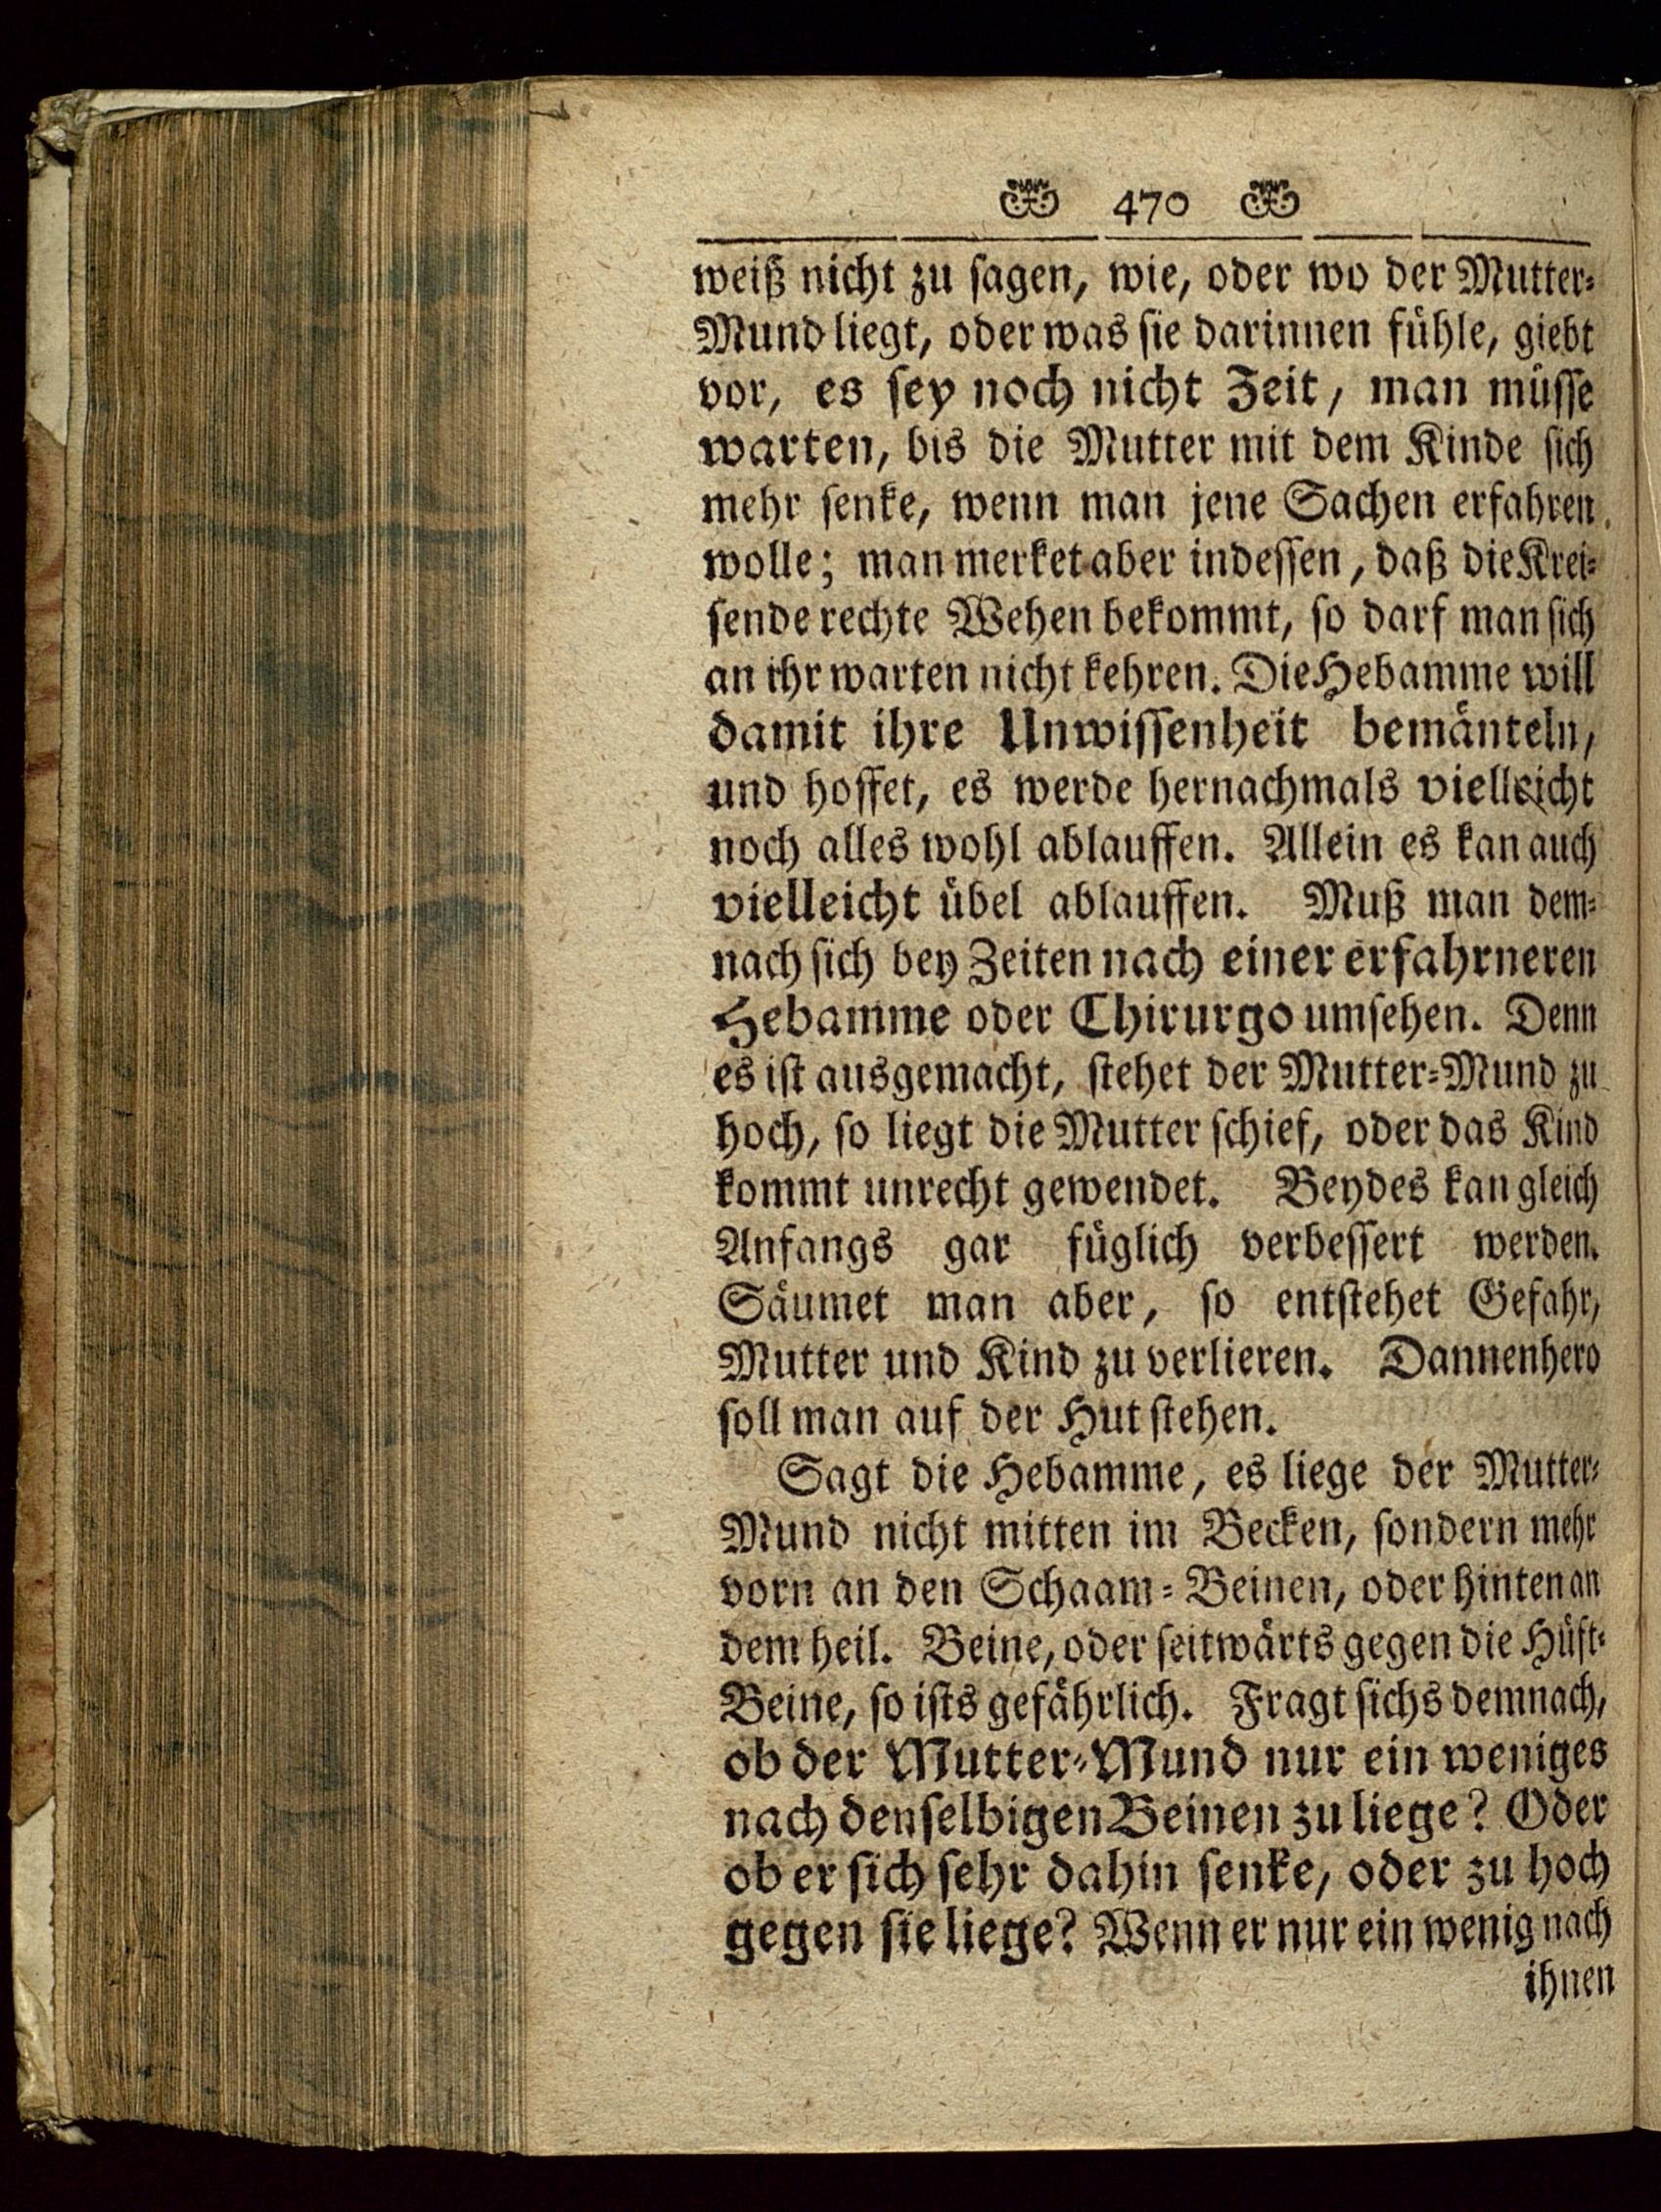 470
weiß nicht zu ſagen, wie, oder wo der Mutter⸗
Mund liegt, oder was ſie darinnen fühle, giebt
vor, es ſey noch nicht Zeit, man müſſe
warten, bis die Mutter mit dem Kinde ſich
mehr ſenke, wenn man jene Sachen erfahren
wolle; man merket aber indeſſen, daß die Krei⸗
ſende rechte Wehen bekommt, ſo darf man ſich
an ihr warten nicht kehren. Die Hebamme will
damit ihre Unwiſſenheit bemänteln,
und hoffet, es werde hernachmals vielleicht
noch alles wohl ablauffen. Allein es kan auch
vielleicht übel ablauffen. Muß man dem⸗
nach ſich bey Zeiten nach einer erfahrneren
Hebamme oder Chirurgo umſehen. Denn
es iſt ausgemacht, ſtehet der Mutter⸗Mund zu
hoch, ſo liegt die Mutter ſchief, oder das Kind
kommt unrecht gewendet. Beydes kan gleich
Anfangs gar füglich verbeſſert werden.
Säumet man aber, ſo entſtehet Gefahr,
Mutter und Kind zu verlieren. Dannenhero
ſoll man auf der Hut ſtehen.
Sagt die Hebamme, es liege der Mutter⸗
Mund nicht mitten im Becken, ſondern mehr
vorn an den Schaam⸗Beinen, oder hinten an
dem heil. Beine, oder ſeitwärts gegen die Hüft⸗
Beine, ſo iſts gefährlich. Fragt ſichs demnach,
ob der Mutter⸗Mund nur ein weniges
nach denſelbigen Beinen zu liege? Oder
ob er ſich ſehr dahin ſenke, oder zu hoch
gegen ſie liege? Wenn er nur ein wenig nach
ihnen